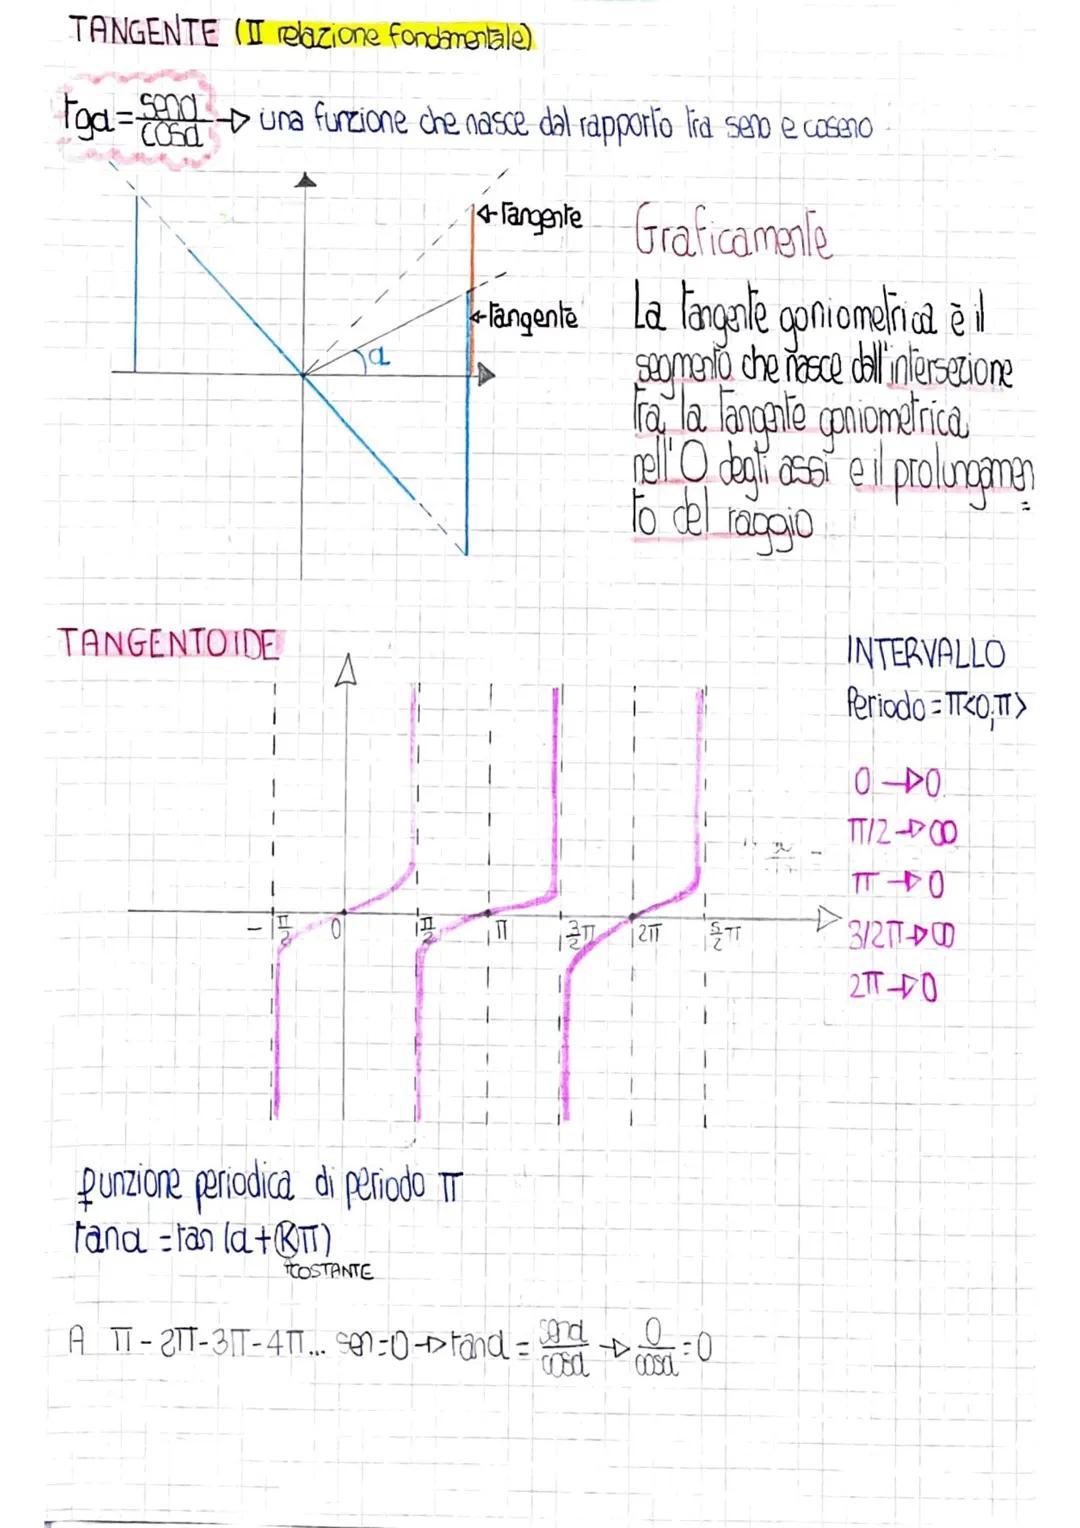 TANGENTE (II relazione fondamentale)
tgα = senα/cosα → una funzione che nasce dal rapporto tra seno e coseno
← Tangente
← Tangente
α
Graficamente
La tangente goniometrica è il
segmento che nasce dall'intersezione
tra la tangente goniometrica
nell'O degli assi e il prolungamen
to del raggio
TANGENTOIDE
INTERVALLO
Periodo = π<0,π>
0 → 0
π/2 → ∞
π → 0
3/2π → ∞
2π → 0
-π/2 0 π/2 π 3/2π 2π 5/2π
funzione periodica di periodo π
tanα = tan (α + Kπ)
COSTANTE
A π - 2π - 3π - 4π... sen = 0 → tanα = senα/cosα → 0/cosα = 0